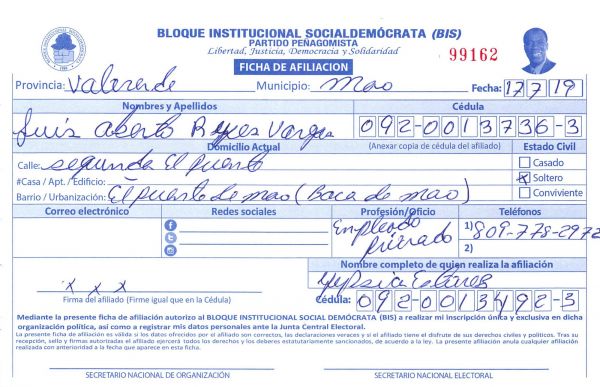 BLOQUE INSTITUCIONAL SOCIALDEMÓCRATA (BIS)
PARTIDO PEÑAGOMISTA
Libertad, Justicia, Democracia y Solidaridad
99162
FICHA DE AFILIACION
Provincia: Valverde Municipio: Mao Fecha: 17 7 19
Nombres y Apellidos Cédula
Luis Aberto Reyes Vargas 092-0013736-3
Domicilio Actual (Anexar copia de cédula del afiliado) Estado Civil
Calle: segunda El puerto Casado
#Casa / Apt. / Edificio: x Soltero
Barrio / Urbanización: El puerto de mao (Boca de mao) Conviviente
Correo electrónico Redes sociales Profesión/Oficio Teléfonos
Empleado privado 1) 809-778-2972
2)
Nombre completo de quien realiza la afiliación
x x x
Firma del afiliado (Firme igual que en la Cédula) Cédula: 092-0013492-3
Mediante la presente ficha de afiliación autorizo al BLOQUE INSTITUCIONAL SOCIAL DEMÓCRATA (BIS) a realizar mi inscripción única y exclusiva en dicha
organización política, así como a registrar mis datos personales ante la Junta Central Electoral.
La presente ficha de afiliación es válida si los datos ofrecidos por el afiliado son correctos, las declaraciones veraces y si el afiliado tiene el disfrute de sus derechos civiles y políticos. Tras su
recepción, sello y firmas autorizadas el afiliado ejercerá todos los derechos y los deberes estatutariamente sancionados, de acuerdo a la ley. La presente afiliación anula cualquier afiliación
realizada con anterioridad a la fecha que aparece en esta ficha.
SECRETARIO NACIONAL DE ORGANIZACIÓN SECRETARIO NACIONAL ELECTORAL